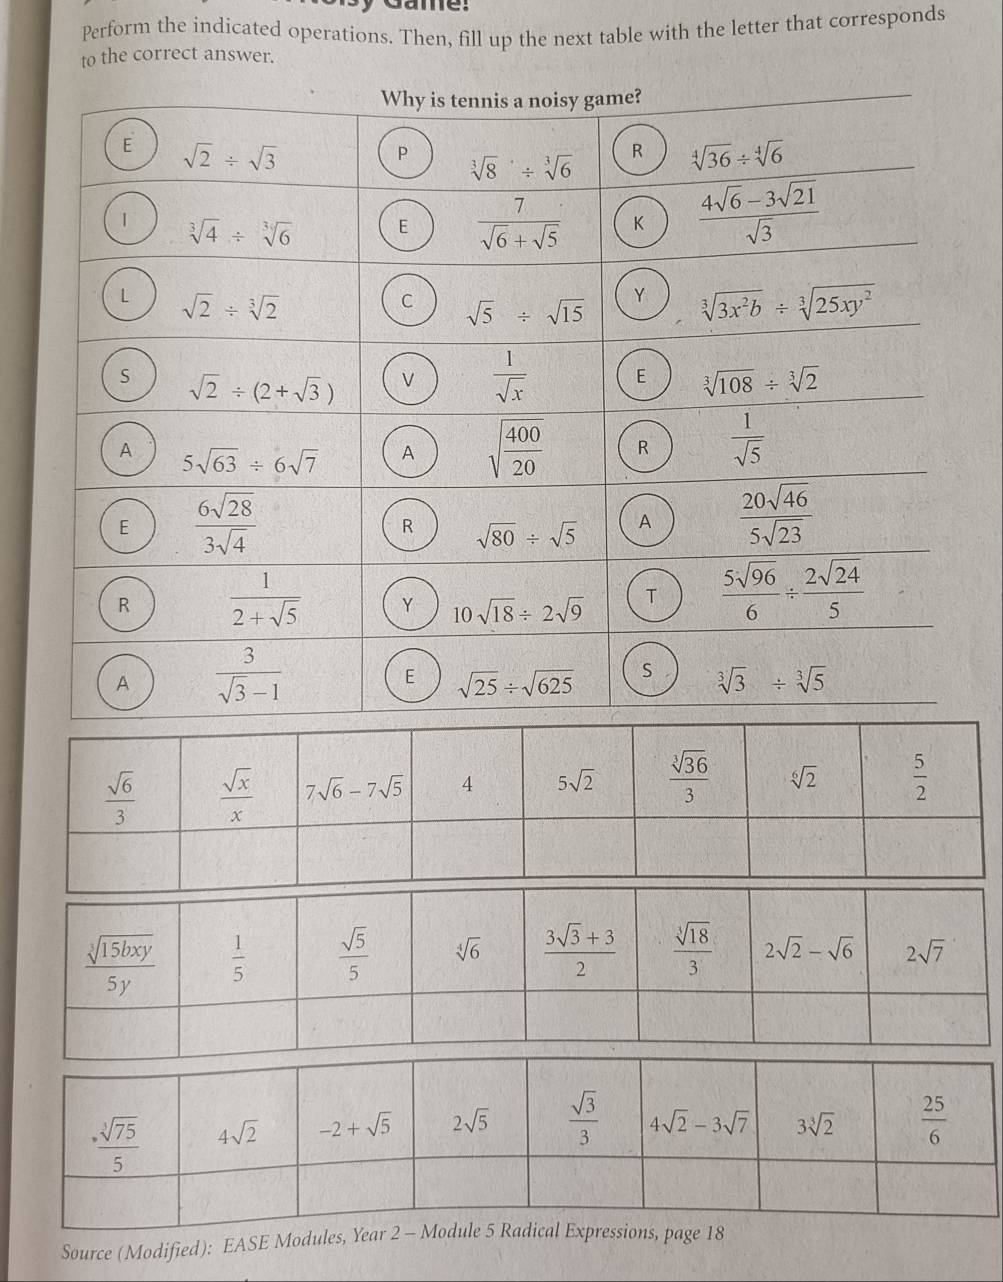 Perform the indicated operations. Then, fill up the next table with the letter that corresponds
to the correct answer.
Why is tennis a noisy game?
E √2 ÷ √3 P ∛8 ÷ ∛6 R ∜36 ÷ ∜6
I ∛4 ÷ ∛6 E 7/(√6 + √5) K (4√6 − 3√21)/√3
L √2 ÷ ∛2 C √5 ÷ √15 Y ∛(3x²b) ÷ ∛(25xy²)
S √2 ÷ (2 + √3) V 1/√x E ∛108 ÷ ∛2
A 5√63 ÷ 6√7 A √(400/20) R 1/√5
E 6√28/3√4 R √80 ÷ √5 A 20√46/5√23
R 1/(2 + √5) Y 10√18 ÷ 2√9 T 5√96/6 ÷ 2√24/5
A 3/(√3 − 1) E √25 ÷ √625 S ∛3 ÷ ∛5
√6/3 √x/x 7√6 − 7√5 4 5√2 ∛36/3 ⁶√2 5/2
∛(15bxy)/5y 1/5 √5/5 ∜6 (3√3 + 3)/2 ∛18/3 2√2 − √6 2√7
∛75/5 4√2 −2 + √5 2√5 √3/3 4√2 − 3√7 3∛2 25/6
Source (Modified): EASE Modules, Year 2 – Module 5 Radical Expressions, page 18